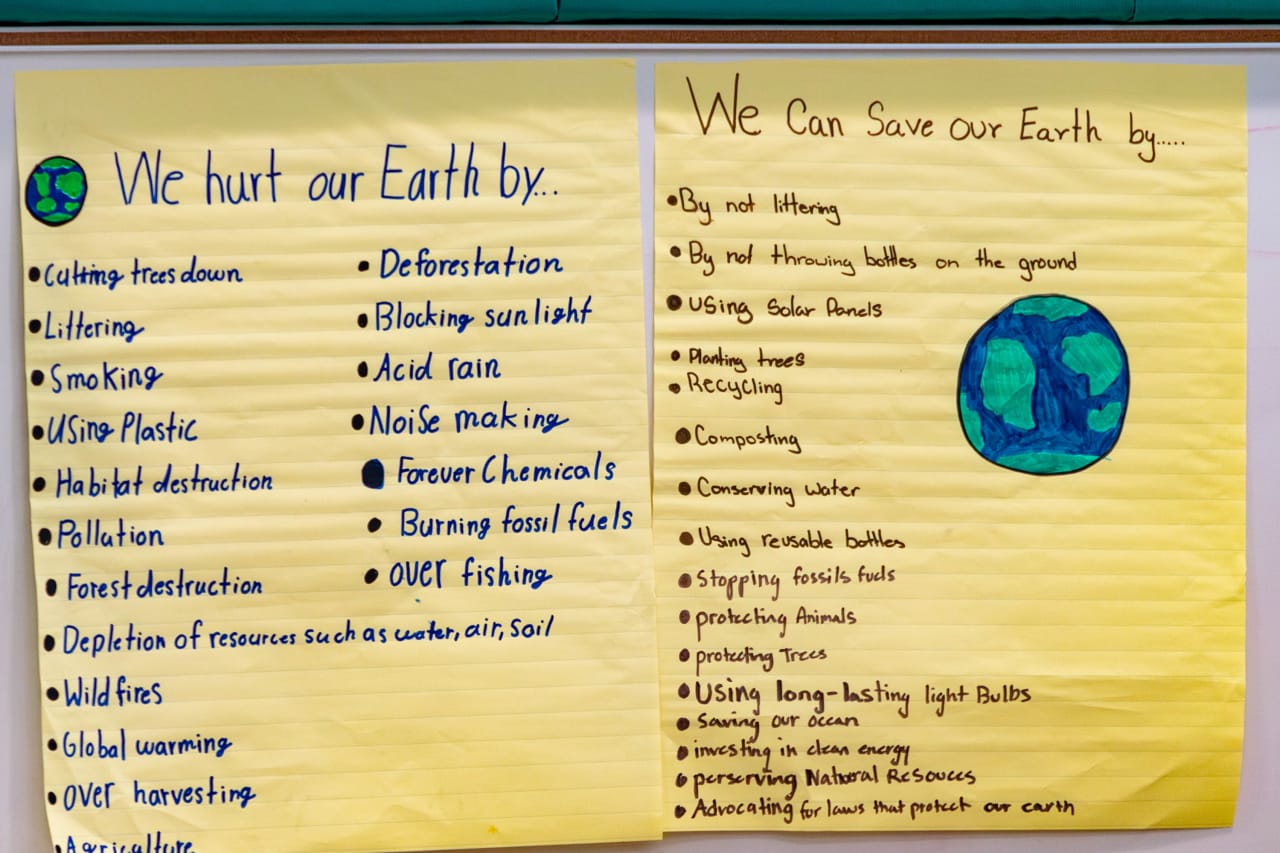 We hurt our Earth by...
•Cutting trees down
•Littering
•Smoking
•Using Plastic
•Habitat destruction
•Pollution
•Forest destruction
•Depletion of resources such as water, air, soil
•Wild fires
•Global warming
•over harvesting
•Agriculture
•Deforestation
•Blocking sunlight
•Acid rain
•Noise making
•Forever Chemicals
•Burning fossil fuels
•over fishing
We Can Save our Earth by.....
•By not littering
•By not throwing bottles on the ground
•using Solar Panels
•Planting trees
•Recycling
•Composting
•Conserving water
•Using reusable bottles
•Stopping fossils fuels
•protecting Animals
•protecting Trees
•Using long-lasting light Bulbs
•Saving our ocean
•investing in clean energy
•perserving Natural Resouces
•Advocating for laws that protect our earth